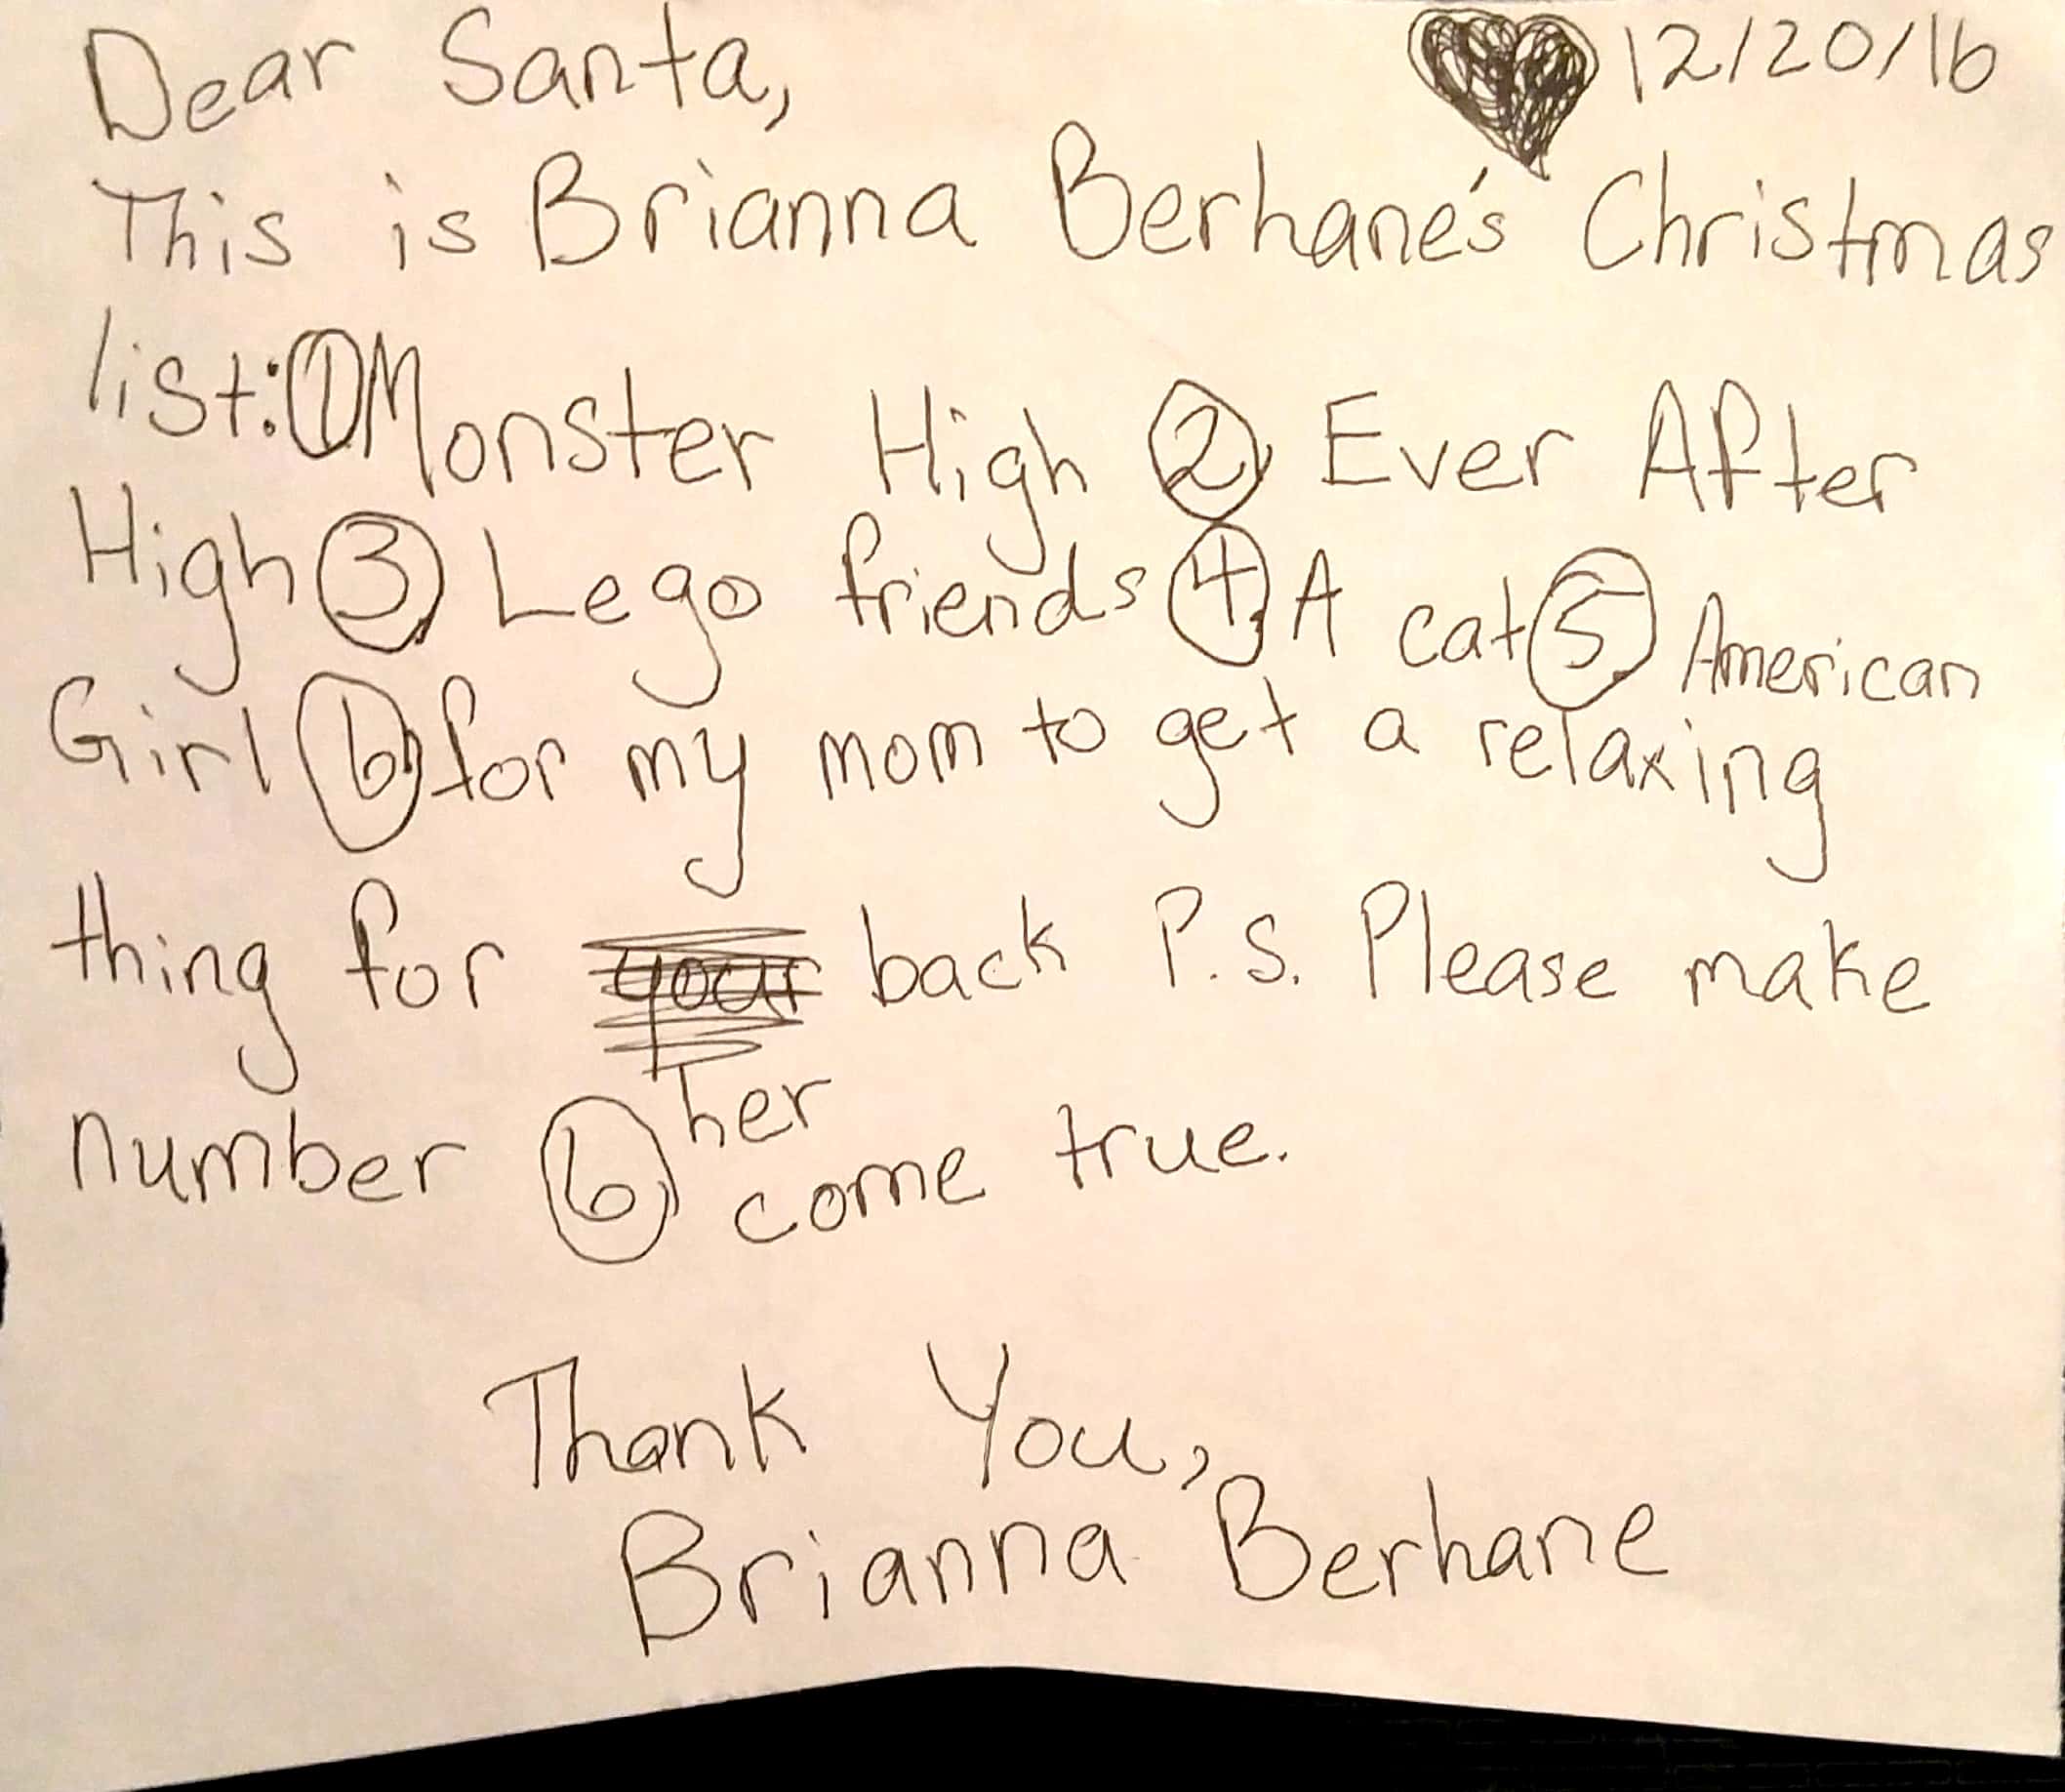 Dear Santa, 12/20/16
This is Brianna Berhane's Christmas
list: ① Monster High ② Ever After
High ③ Lego friends ④ A cat ⑤ American
Girl ⑥ for my mom to get a relaxing
thing for your back P.S. Please make
her
number ⑥ come true.
Thank You,
Brianna Berhane